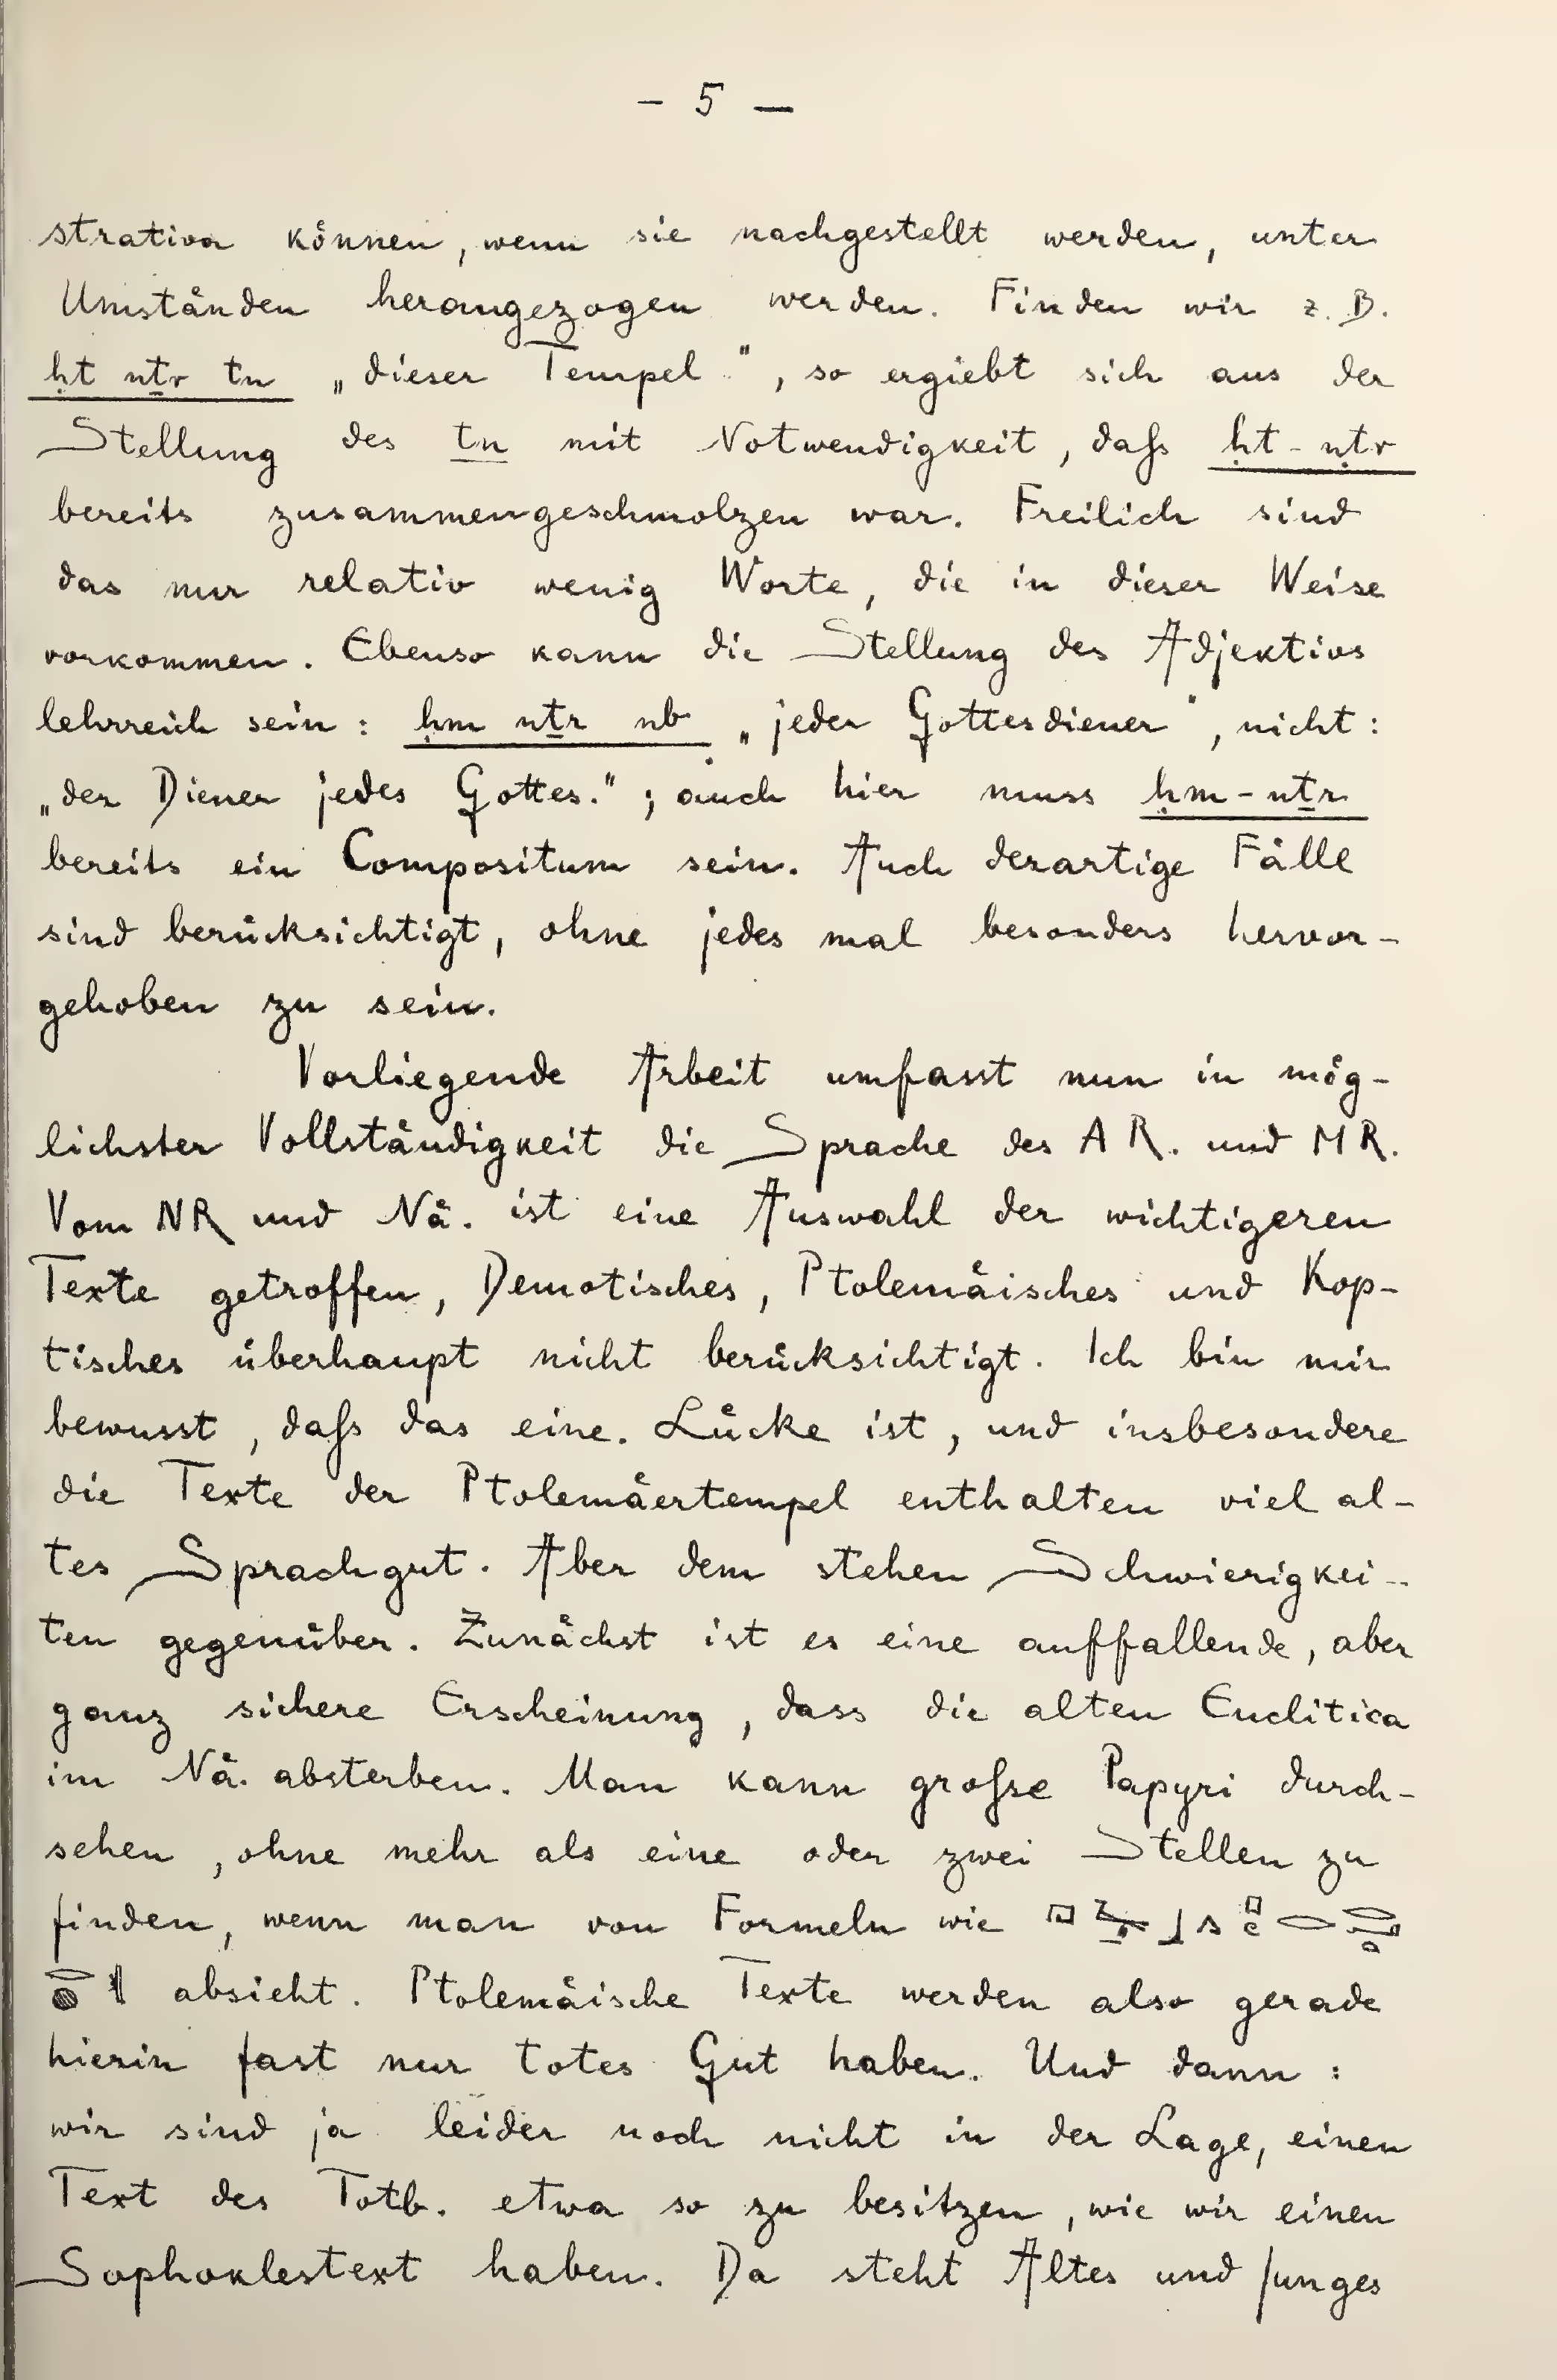 – 5 –
strativa können, wenn sie nachgestellt werden, unter
Umständen herangezogen werden. Finden wir z. B.
ḥt nṯr tn „dieser Tempel“, so ergiebt sich aus der
Stellung des tn mit Notwendigkeit, daſs ḥt-nṯr
bereits zusammengeschmolzen war. Freilich sind
das nur relativ wenig Worte, die in dieser Weise
vorkommen. Ebenso kann die Stellung des Adjektivs
lehrreich sein: ḥm nṯr nb „jeder Gottesdiener“, nicht:
„der Diener jedes Gottes.“; auch hier muss ḥm-nṯr
bereits ein Compositum sein. Auch derartige Fälle
sind berücksichtigt, ohne jedes mal besonders hervor-
gehoben zu sein.
Vorliegende Arbeit umfasst nun in mög-
lichster Vollständigkeit die Sprache des AR. und MR.
Vom NR und Nä. ist eine Auswahl der wichtigeren
Texte getroffen, Demotisches, Ptolemäisches und Kop-
tisches überhaupt nicht berücksichtigt. Ich bin mir
bewusst, daſs das eine Lücke ist, und insbesondere
die Texte der Ptolemäertempel enthalten viel al-
tes Sprachgut. Aber dem stehen Schwierigkei-
ten gegenüber. Zunächst ist es eine auffallende, aber
ganz sichere Erscheinung, dass die alten Enclitica
im Nä. absterben. Man kann groſse Papyri durch-
sehen, ohne mehr als eine oder zwei Stellen zu
finden, wenn man von Formeln wie
absieht. Ptolemäische Texte werden also gerade
hierin fast nur totes Gut haben. Und dann:
wir sind ja leider noch nicht in der Lage, einen
Text des Totb. etwa so zu besitzen, wie wir einen
Sophoklestext haben. Da steht Altes und Junges